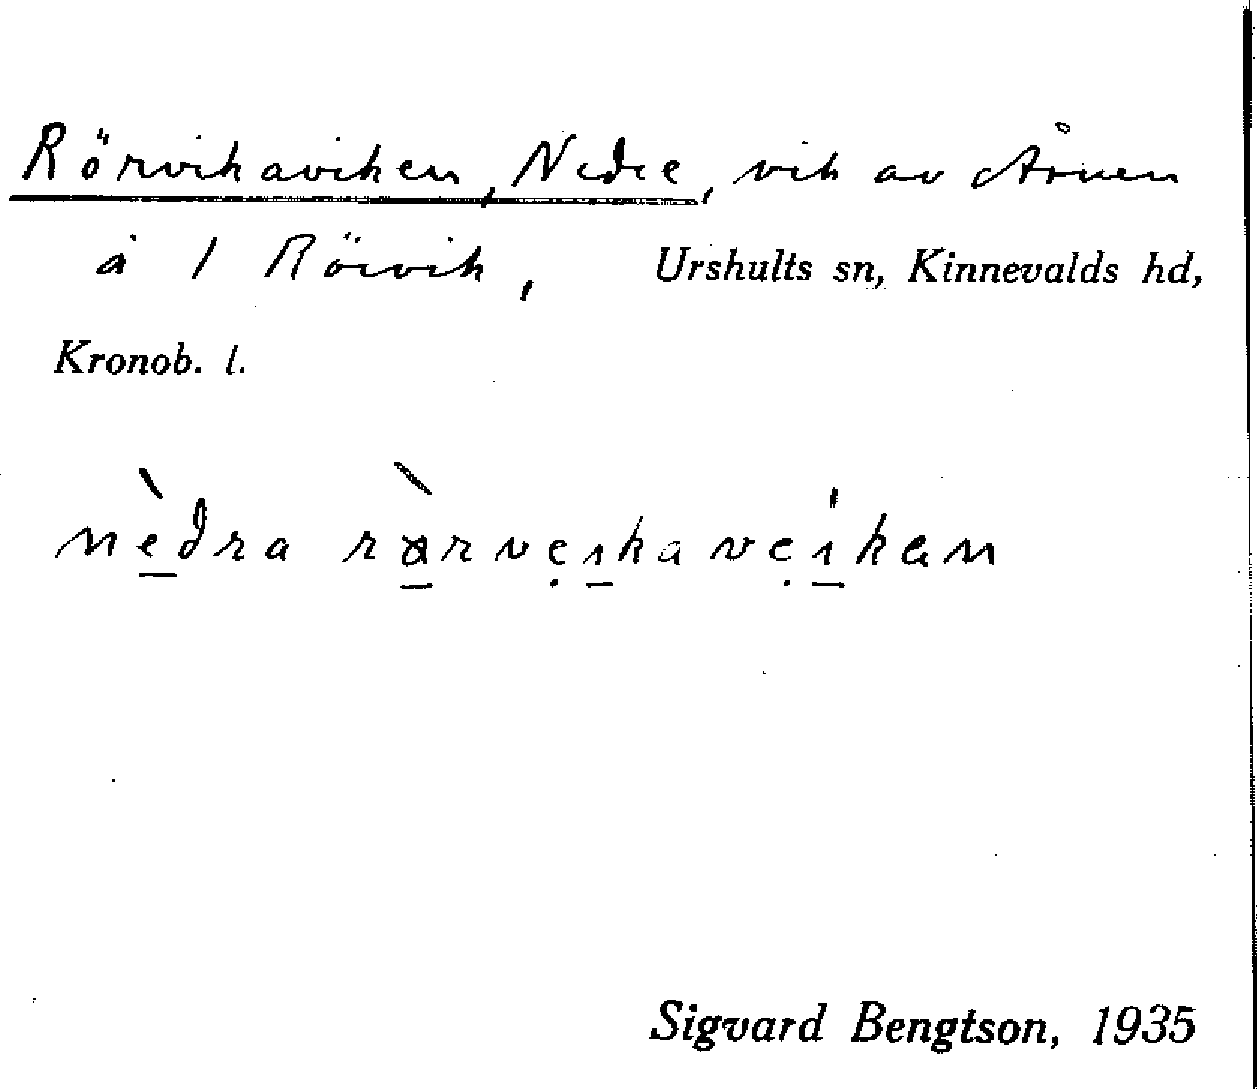 Rörvikaviken, Nedre, vik av Åsnen
å 1 Rörvik, Urshults sn, Kinnevalds hd,
Kronob. l.
nèdra rȧ̀rvẹıkavẹı́kan
Sigvard Bengtson, 1935